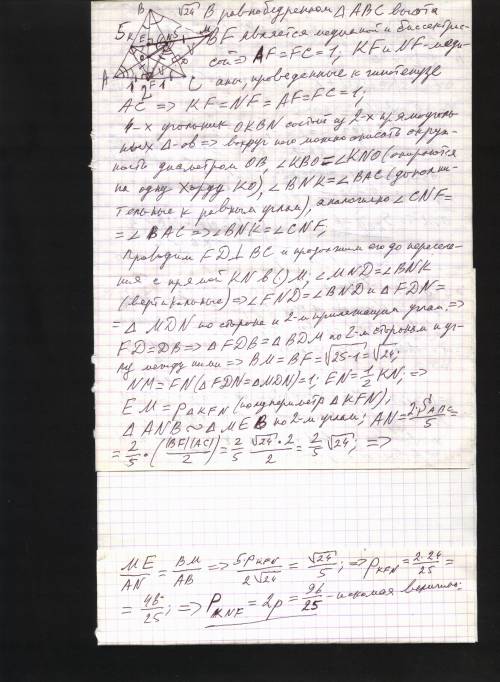 В равнобедренном Δ ABC высота
BF является медианой и биссектрис-
сой => AF=FC=1; KF и NF-меди-
аны, проведенные к гипотенузе
AC => KF=NF=AF=FC=1;
4-х угольник OKBN состоит из 2-х прямоуголь-
ных Δ-ов => вокруг него можно описать окруж-
ность диаметром OB, ∠KBO=∠KNO (опираются
на одну хорду KO), ∠BNK=∠BAC (дополни-
тельные к равным углам), аналогично ∠CNF=
=∠BAC => ∠BNK=∠CNF;
Проводим FD⊥BC и продолжим его до пересече-
ния с прямой KN в () M, ∠MND=∠BNK
(вертикальные) => ∠FND=∠BND и ΔFDN=
=ΔMDN по стороне и 2-м прилежащим углам. =>
FD=DB => ΔFDB=ΔBDM по 2-м сторонам и уг-
лу между ними => BM=BF=√25-1=√24;
NM=FN (ΔFDN=ΔMDN)=1; EN=1/2 KN; =>
EM=p ΔKFN (полупериметр ΔKFN);
ΔANB ~ ΔMEB по 2-м углам; AN=2·S ABC/5=
=2/5·(|BF||AC|/2)=2/5 √24·2/2=2/5 √24; =>
ME/AN=BM/AB => 5p KFN/2√24=√24/5; => p KFN=2·24/25=
=48/25; => P KNF=2p=96/25 - искомая величина.
B
√24
5
K
E
N
M
O
A
1
F
1
C
2